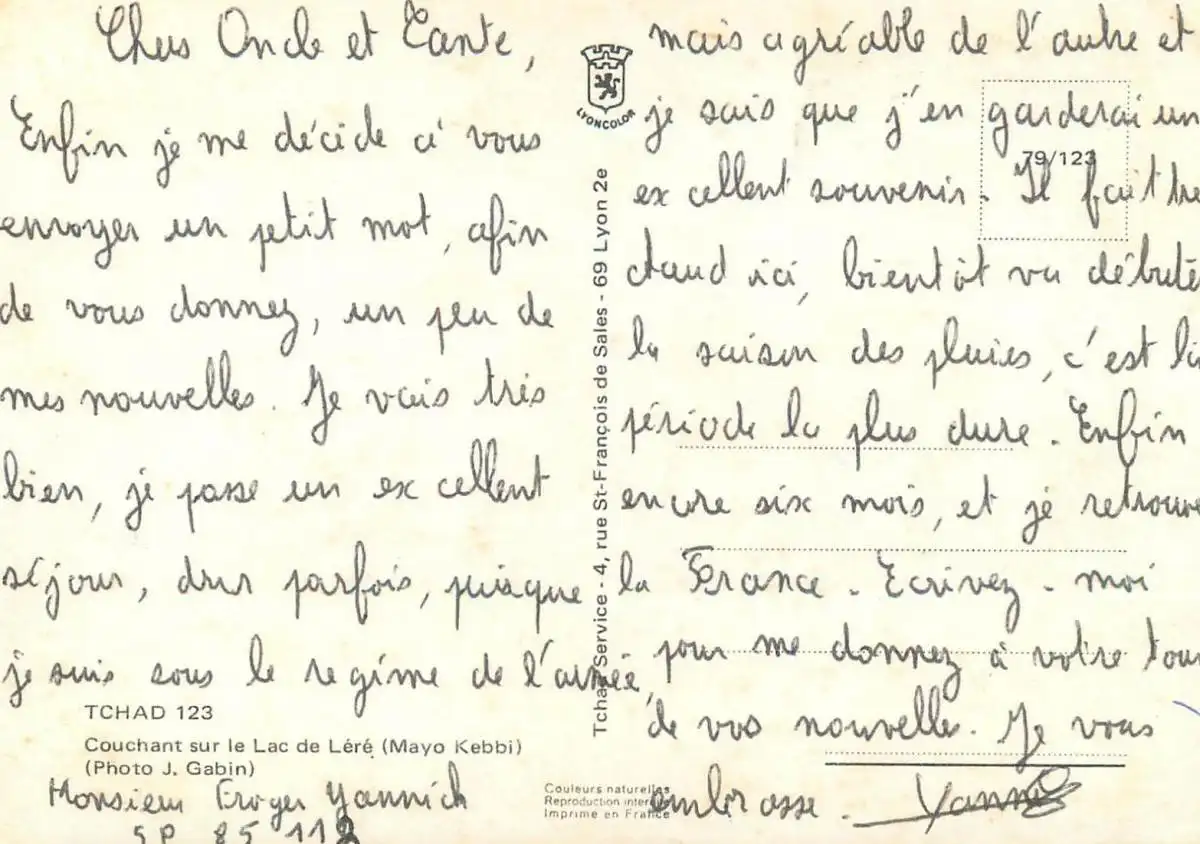 Chers Oncle et Tante,
Enfin je me décide à vous
envoyer un petit mot, afin
de vous donnez, un peu de
mes nouvelles. Je vais très
bien, je passe un excellent
séjour, dur parfois, puisque
je suis sous le régime de l'armée,
TCHAD 123
Couchant sur le Lac de Léré (Mayo Kebbi)
(Photo J. Gabin)
Monsieur Yannick
SP 85 112
LYONCOLOR
Tchad Service - 4, rue St-François de Sales - 69 Lyon 2e
Couleurs naturelles
Reproduction inter
Imprimé en France
79/123
mais agréable de l'autre et
je sais que j'en garderai un
excellent souvenir. Il fait trè
chaud ici, bientôt va débute
la saison des pluies, c'est la
période la plus dure. Enfin
encore six mois, et je retrouve
la France. Ecrivez-moi
pour me donnez à votre tour
de vos nouvelles. Je vous
embrasse. Yannick